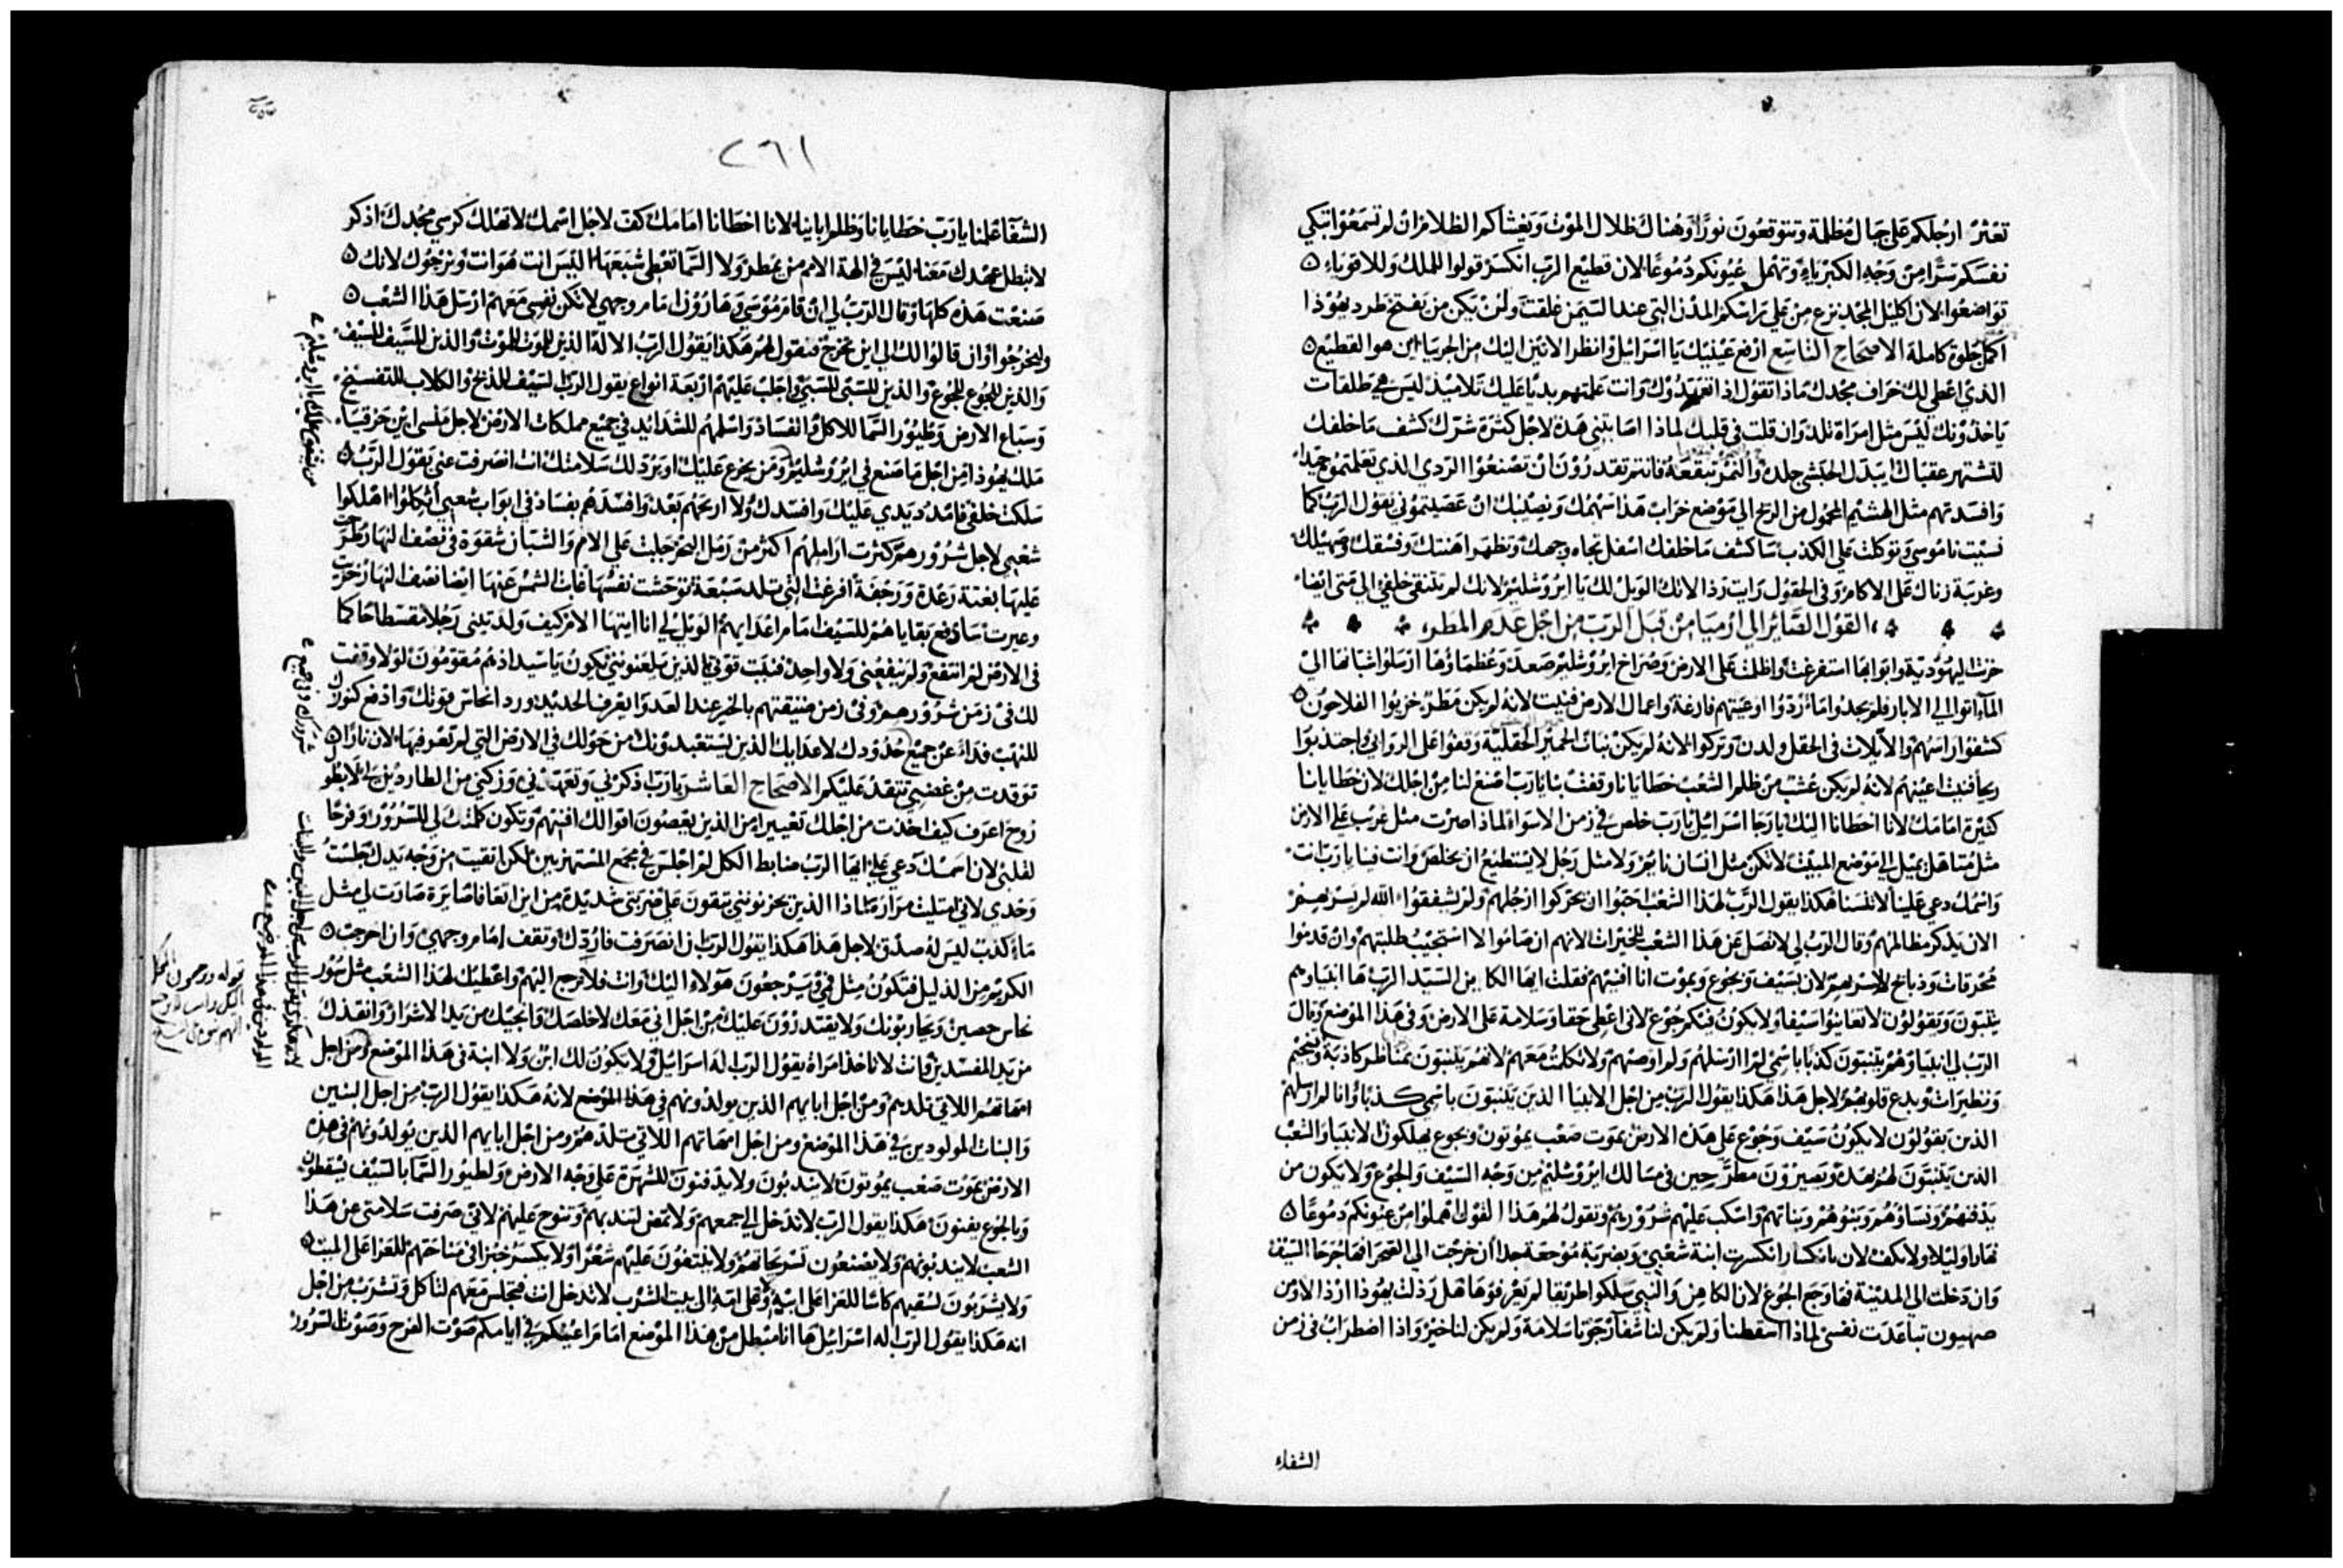 تعثر ارجلكم على جبال مظلمة وتتوقعون نورًا وهناك ظلال الموت ويغشاكم الظلام ان لم تسمعوا تبكي
نفسكم سرًا من وجه الكبرياء وتهمل عيونكم دموعًا لان قطيع الرب انكسر قولوا للملك وللاقوياء
تواضعوا لان اكليل المجد نزع من على راسكم المدن التي عند التيمن غلقت ولن يكن من يفتح طرد يهوذا
اكمل جلوة كاملة الاصحاح التاسع ارفع عينيك يا اسرائيل وانظر الاتين اليك من الجربيا اين هو القطيع
الذي اعطي لك خراف مجدك ماذا تقول اذا تعهدوك وانت علمتهم بديا عليك تلاميذ ليس هي طلقات
ياخذونك ليس مثل امراة تلد وان قلت في قلبك لماذا اصابتني هذه لاجل كثرة شرك كشف ما خلفك
لتشتهر عقباك ايبدل الحبشي جلده والنمر تبقعه فانتم تقدرون ان تصنعوا الردي الذي تعلمتموه جيدا
وافسدتهم مثل الهشيم المحمول من الريح الى موضع خراب هذا سهمك ونصيبك ان عصيتموني يقول الرب كما
نسيت ناموسي وتوكلت على الكذب ساكشف ما خلفك اسفل تجاه وجهك وتظهر اهنتك وفسقك وصهيلك
وغربة زناك على الاكام وفي الحقول رايت رذالاتك الويل لك يا ايروشليم لانك لم تتنقي خلفي الى متى ايضا
القول الصائر الى ارميا من قبل الرب من اجل عدم المطر
حزنت اليهودية وابوابها استفرغت واظلمت على الارض وصراخ ايروشليم صعد وعظماؤها ارسلوا شبانها الى
الماء اتوا الى الابار فلم يجدوا ماء ردوا اوعيتهم فارغة واعمال الارض فنيت لانه لم يكن مطر خزيوا الفلاحون
كشفوا راسهم والآيلات في الحقل ولدن وتركوا لانه لم يكن نبات الحمير الحقلية وقفوا على الروابي واجتذبوا
ريحا فنيت اعينهم لانه لم يكن عشب من ظلم الشعب خطايانا وقفت بنا يارب اصنع لنا من اجلك لان خطايانا
كثيرة امامك لاننا اخطانا اليك يارجا اسرائيل يارب خلص في زمن الاسواء لماذا صرت مثل غريب على الارض
مثل متاهل يميل الى موضع المبيت لا تكن مثل انسان نائم ولا مثل رجل لا يستطيع ان يخلص وانت فينا يارب انت
واسمك دعي علينا لا تنسنا هكذا يقول الرب لهذا الشعب احبوا ان يحركوا ارجلهم ولم يشفقوا الله لم يسر بهم
الان يذكر مظالمهم وقال الرب لي لا تصل عن هذا الشعب للخيرات لانهم ان صاموا لا استجيب طلبتهم وان قدموا
محرقات وذبائح لا اسر بهم لان بسيف وبجوع وبموت انا افنيهم فقلت ايها الكاين السيد الرب ها انبياوهم
يتنبون ويقولون لا تعاينوا سيفا ولا يكون فيكم جوع لاني اعطي حقا وسلامة على الارض وفي هذا الموضع وقال
الرب لي انبياوهم يتنبون كذبا باسمي لم ارسلهم ولم اوصهم ولا تكلمت معهم لانهم يتنبون بمناظر كاذبة وتنجيم
وتطيرات وبدع قلوبهم لاجل هذا هكذا يقول الرب من اجل الانبيا الذين يتنبون باسمي كذبا وانا لم ارسلهم
الذين يقولون لا يكون سيف وجوع على هذه الارض بموت صعب يموتون وبجوع يهلكون الانبيا والشعب
الذين يتنبون لهم بهذه ويصيرون مطرحين في مسالك ايروشليم من وجه السيف والجوع ولا يكون من
يدفنهم ونساؤهم وبنوهم وبناتهم واسكب عليهم شرورهم وتقول لهم هذا القول اهملوا من عيونكم دموعًا
نهارا وليلا ولا تكف لان بانكسار انكسرت ابنة شعبي وبضربة موجعة جدا ان خرجت الى الصحرا فها جرحا السيف
وان دخلت الى المدينة فها وجع الجوع لان الكاهن والنبي سلكوا طريقا لم يعرفوها هل رذلت يهوذا ارذالا ومن
صهيون تباعدت نفسي لماذا اسقطتنا ولم يكن لنا شفا ترجونا سلامة ولم يكن لنا خير واذا اضطراب في زمن
الشفاء
٢٦١
الشفآ علمنا يارب خطايانا وظلم ابائنا لاننا اخطانا امامك كف لاجل اسمك لا تهلك كرسي مجدك اذكر
لا تبطل عهدك معنا اليس في الهة الامم من يمطر ولا السما تعطي شبعها اليس انت هو انت ونرجوك لانك
صنعت هذه كلها وقال الرب لي ان قام موسى وهارون امام وجهي لا تكن نفسي معهم ارسل هذا الشعب
وليخرجوا وان قالوا لك الى اين نخرج فتقول لهم هكذا يقول الرب الاله الذين للموت للموت والذين للسيف للسيف
والذين للجوع للجوع والذين للسبي للسبي واجلب عليهم اربعة انواع يقول الرب السيف للذبح والكلاب للتفسيخ
وسباع الارض وطيور السما للاكل والفساد واسلمهم للشدائد في جميع مملكات الارض لاجل منسى ابن حزقيا
ملك يهوذا من اجل ما صنع في ايروشليم ومن يجزع عليك او يرد لك سلامتك انت انصرفت عني يقول الرب
سلكت خلفي فامدد يدي عليك وافسدك ولا ارحمهم بعد وافسدهم بفساد في ابواب شعبي اثكلوا اهلكوا
شعبي لاجل شرورهم كثرت اراملهم اكثر من رمل البحر جلبت على الام والشبان شقوة في نصف النهار طرحت
عليها بغتة رعدة ورجفة افرغت التي تلد سبعة توحشت نفسها غابت الشمس عنها ايضا نصف النهار خزيت
وعيرت سادفع بقاياهم للسيف امام اعدايهم الويل لي انا ايتها الام كيف ولدتيني رجلا مقسطا حاكما
في الارض لم انتفع ولم ينفعني ولا واحد فنيت قوتي بالذين يلعنونني يكون يا سيد اذهم مقومون لولا وقفت
لك في زمن شرورهم وفي زمن ضيقتهم بالخير عند العدو ايعرف الحديد ورداء نحاس قوتك وادفع كنوزك
للنهب فداء عن جميع حدودك لاعدايك الذين يستعبدونك من حولك في الارض التي لم تعرفها لان نارا
توقدت من غضبي تتقد عليكم الاصحاح العاشر يارب اذكرني وتعهدني وزكني من الطاردين لي لا بطو
روح اعرف كيف اخذت من اجلك تعييرا من الذين يعصون اقوالك افنيهم وتكون كلمتك لي للسرور وفرحا
لقلبي لان اسمك دعي علي ايها الرب ضابط الكل لم اجلس في مجمع المستهزيين لكن اتقيت من وجه يدك جلست
وحدي لاني امتليت مرارة لماذا الذين يحزنونني يتقون علي ضربتي شديدة من اين اتعافا صايرة صارت لي مثل
ماء كذب ليس له صدق لاجل هذا هكذا يقول الرب ان انصرفت فاردك وتقف امام وجهي وان اخرجت
الكريم من الذليل فتكون مثل فمي ويرجعون هولاء اليك وانت فلا ترجع اليهم واعطيك لهذا الشعب مثل سور
نحاس حصين ويحاربونك ولا يقتدرون عليك من اجل اني معك لاخلصك وانجيك من يد الاشرار وانقذك
من يد المفسدين وانت لا تاخذ امراة يقول الرب اله اسرائيل ولا يكون لك ابن ولا ابنة في هذا الموضع ومن اجل
امهاتهم اللاتي تلدهم ومن اجل ابايهم الذين يولدونهم في هذا الموضع لانه هكذا يقول الرب من اجل البنين
والبنات المولودين في هذا الموضع ومن اجل امهاتهم اللاتي تلدهم ومن اجل ابايهم الذين يولدونهم في هذه
الارض بموت صعب يموتون لا يندبون ولا يدفنون للشهرة على وجه الارض ولطيور السما بالسيف يسقطون
وبالجوع يفنون هكذا يقول الرب لا تدخل الى مجمعهم ولا تمض لتندبهم وتنوح عليهم لاني صرفت سلامتي عن هذا
الشعب لا يندبونهم ولا يصنعون تسريحاتهم ولا ينتفون عليهم شعرا ولا يكسر خبزا في مناحتهم للعزا على الميت
ولا يشربون لسقيهم كاسا للعزا على ابيه وعلى امه الى بيت الشرب لا تدخل انت فتجلس معهم لتاكل وتشرب من اجل
انه هكذا يقول الرب اله اسرائيل ها انا مبطل من هذا الموضع امام اعينكم وفي ايامكم صوت الفرح وصوت السرور
من يشفق عليك يا ايروشليم
شرورك وفي جميع
لانه هكذا يقول الرب من اجل البنين والبنات
المولودين في هذا الموضع